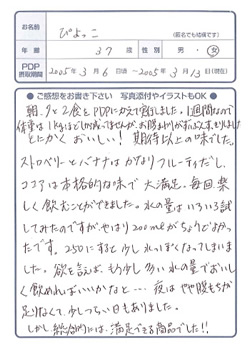 お名前
ぴよっこ
(匿名でも結構です)
年齢 37 歳 性別 男・女
PDP
摂取期間 2005年 3月 6日 ~ 2005年 3月 13日(現在)
●ご感想をお書き下さい 写真添付やイラストもOK●
朝、夕と2食をPDPにかえて実行しました。1週間なので
体重は1kgほどしか減ってませんが、お腹まわりがすっきりしました。
とにかくおいしい! 期待以上の味でした。
ストロベリーとバナナはかなりフルーティだし、
ココアは本格的な味で大満足。毎回楽
しく飲むことができました。水の量はいろいろ試
してみたのですがやはり200mlがちょうどよかっ
たです。250にすると少し水っぽくなってしまいま
した。欲を言えば、もう少し多い水の量でおいし
く飲めればいいかなと… 夜はやや腹もちが
足りなくて、少しつらい日もありました。
しかし総合的には、満足できる商品でした!!